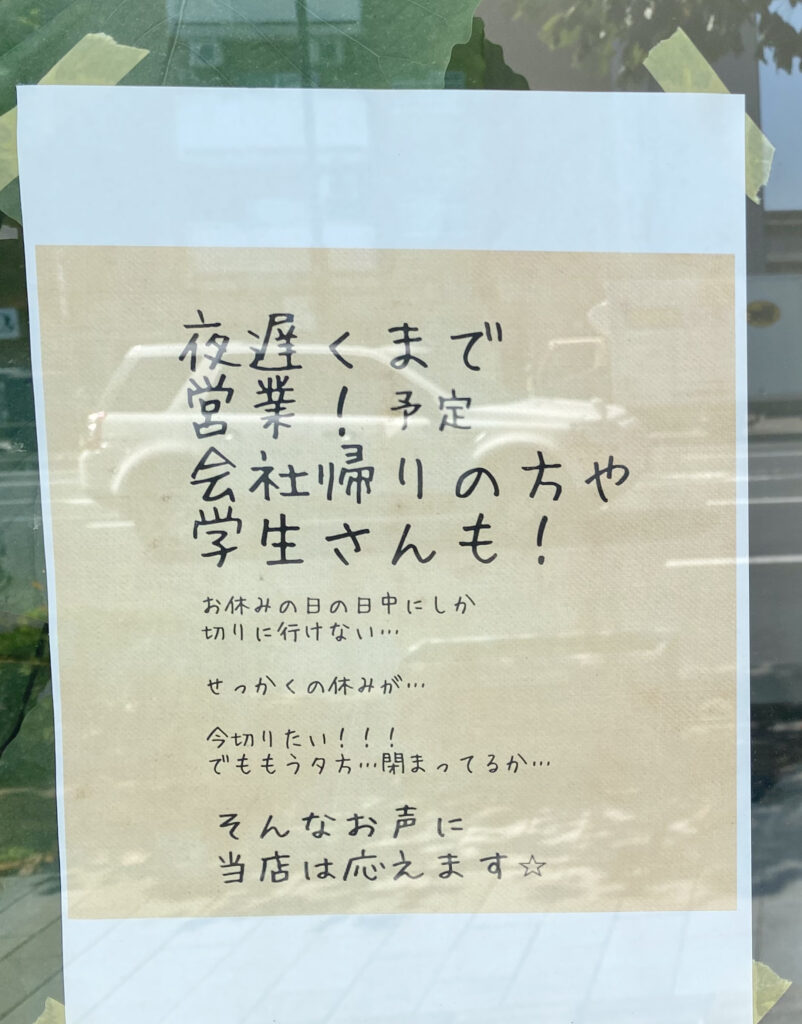 夜遅くまで
営業！予定
会社帰りの方や
学生さんも！
お休みの日の日中にしか
切りに行けない…
せっかくの休みが…
今切りたい！！！
でももう夕方…閉まってるか…
そんなお声に
当店は応えます☆